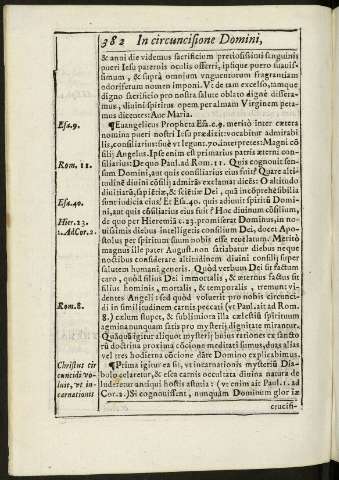 382 In circuncisione Domini,
& anni die videmus sacrificium pretiosissimi sanguinis
pueri Iesu paternis oculis offerri, ipsique puero suauis-
simum, & suprà omnium vnguentorum fragrantiam
odoriferum nomen imponi. Vt de tam excelso, tamque
digno sacrificio pro nostra salute oblato dignè dissera-
mus, diuini spiritus opem per almam Virginem peta-
mus dicentes: Aue Maria.
Esa.9.
¶Euangelicus Propheta Esa.c.9. meritò inter cætera
nomina pueri nostri Iesu prædixit: vocabitur admirabi-
lis, consiliarius: siue vt legunt.70. interpretes: Magni cō
silij Angelus. Ipse enim est primarius patris æterni con-
Rom. 11.
siliarius: De quo Paul. ad Rom. 11. Quis cognouit sen-
sum Domini, aut quis consiliarius eius fuit? Quare alti-
tudinē diuini cōsilij admirās exclamat dicēs: O altitudo
diuitiarū, sapiētiæ, & sciētiæ Dei, quā incōprehēsibilia
Esa.40.
sunt iudicia eius! Et Esa.40. quis adiuuit spiritū Domi-
ni, aut quis cōsiliarius eius fuit? Hoc diuinum cōsilium,
Hier.23.
de quo per Hieremiā c.23. promiserat Dominus, in no-
1.AdCor.2.
uissimis diebus intelligetis consilium Dei, docet Apo-
stolus per spiritum suum nobis esse reuelatum. Meritò
magnus ille pater August. non satiabatur diebus neque
noctibus considerare altitudinem diuini consilij super
salutem humani generis. Quòd verbum Dei sit factum
caro, quòd filius Dei immortalis, & æternus factus sit
filius hominis, mortalis, & temporalis, tremunt vi-
dentes Angeli: sed quòd voluerit pro nobis circunci-
Rom.8.
di in similitudinem carnis peccati (vt Paul. ait ad Rom.
8.) cælum stupet, & sublimiora illa cælestiū spirituum
agmina nunquam satis pro mysterij dignitate mirantur.
Quāquā igitur aliquot mysterij huius rationes ex sancto
rū doctrina proxima cōcione meditati simus, duas alias
vel tres hodierna cōcione dāte Domino explicabimus.
Christus cir
cuncidi vo-
luit, vt in-
carnationis
¶Prima igitur ea sit, vt incarnationis mysteriū Dia-
bolo celaretur, & esca carnis occultata diuina natura de
luderetur antiqui hostis astutia: (vt enim ait Paul. 1. ad
Cor.2.) Si cognouissent, nunquàm Dominum glor iæ
crucifi-